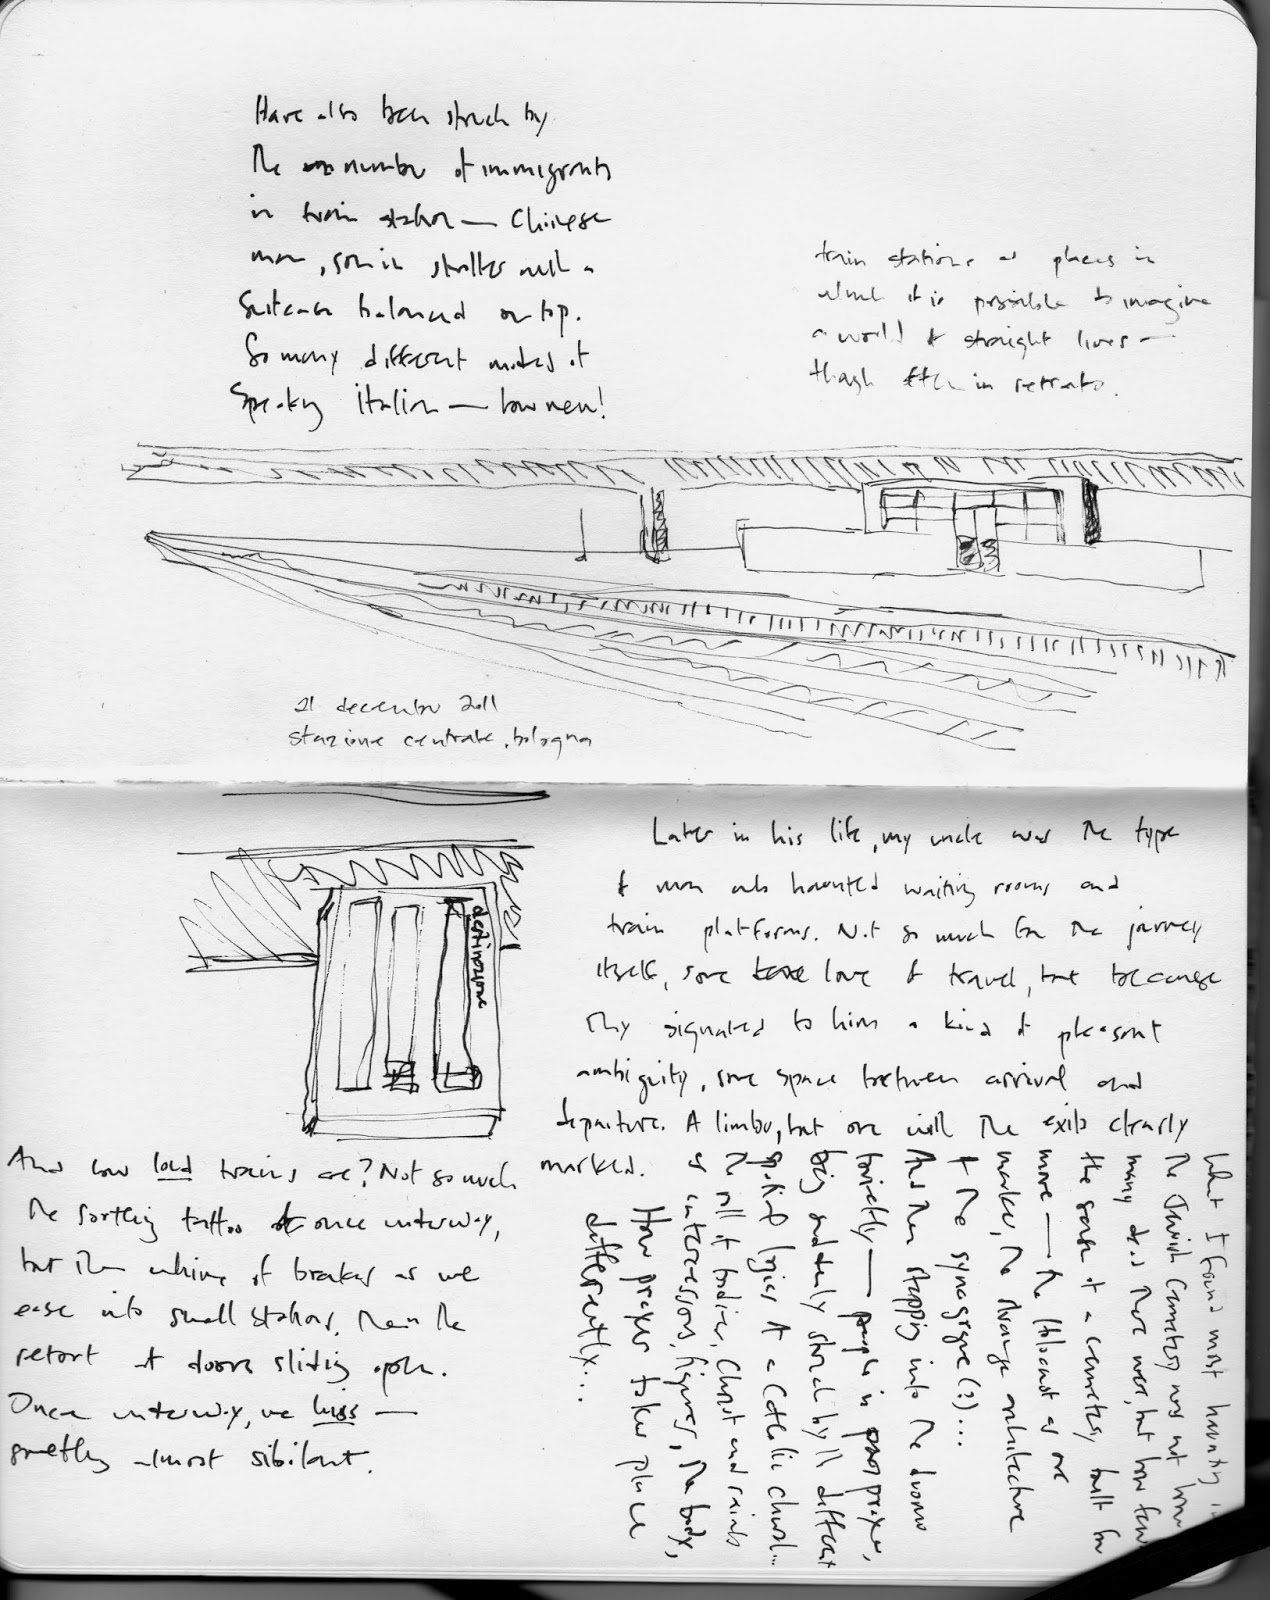 Have also been struck by
the number of immigrants
in train station — Chinese
man, son in stroller with a
suitcase balanced on top.
So many different modes of
speaking Italian — how new!
train stations as places in
which it is possible to imagine
a world of straight lines —
though often in retrato.
21 decembre 2011
stazione centrale, bologna
destinazione
Later in his life, my uncle was the type
of man who haunted waiting rooms and
train platforms. Not so much for the journey
itself, some love of travel, but because
they signaled to him a kind of pleasant
ambiguity, some space between arrival and
departure. A limbo, but one with the exits clearly
marked.
And how loud trains are? Not so much
the tattoo of once underway,
but the whine of brakes as we
ease into small stations, then the
retort of doors sliding open.
Once underway, we hiss —
something almost sibilant.
What I found most haunting in
the Jewish Cemetery was not how
many dead there were, but how few
the sense of a cemetery built for
more — the Holocaust as one
marker, the strange architecture
of the synagogue (?)...
And then stepping into the duomo
briefly — people in prayer,
being suddenly struck by the different
logics of a Catholic church...
the role of bodies, Christ and saints
as intercessors, figures, the body,
How prayer takes place
differently...